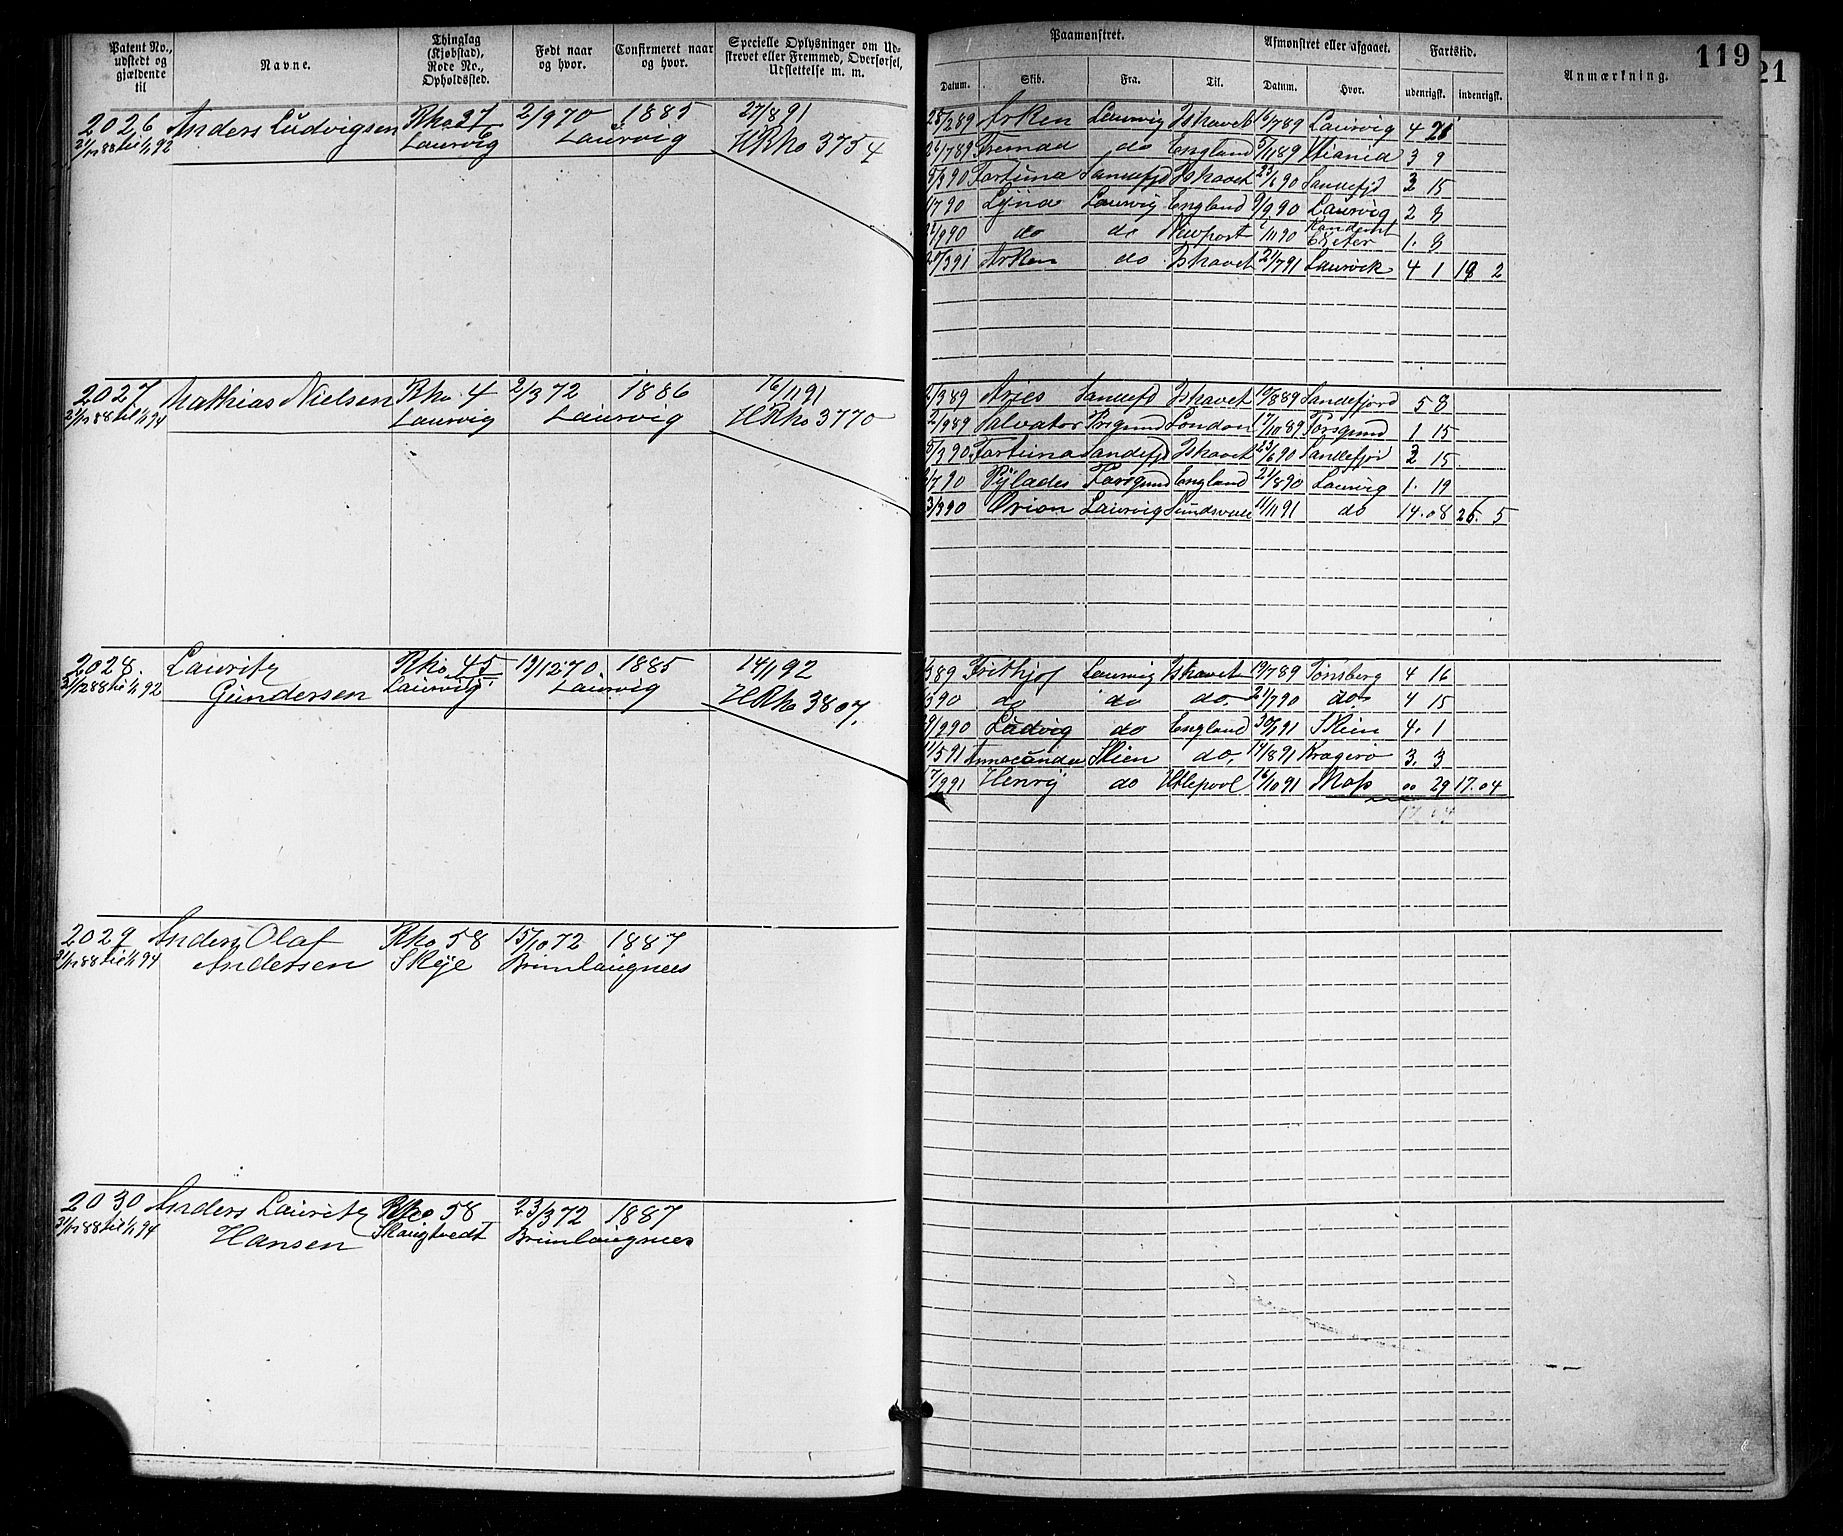 119
21
Patent No., udstedt og gjældende til
Navne.
Thinglag (Kjøbstad), Rode No., Opholdssted.
Født naar og hvor.
Confirmeret naar og hvor.
Specielle Oplysninger om Udskrevet eller Fremmed, Overførsel, Udslettelse m. m.
Paamønstret.
Afmønstret eller afgaaet.
Fartstid.
Anmærkning.
Datum.
Skib.
Fra.
Til.
Datum.
Hvor.
udenrigsk.
indenrigsk.
2026 Anders Ludvigsen Rho 27 2/9 70 1885 27/8 91
31/12 88 til 1/1 92 Laurvig 6 Laurvig HRho 3754
25/2 89 Arken Laurvig Ishavet 16/7 89 Laurvig 4 21
Fremad do England 9/11 89 3 9
5/3 90 Fortuna Sandefjd Ishavet 23/6 90 Sandefjd 3 15
/7 90 Lyna Laurvig England 9/9 90 Laurvig 2 8
/9 90 do do Newport /11 90 Exeter 1. 8
/3 91 Arken do Ishavet 21/7 91 Laurvik 4 1 18 2
2027 Mathias Nielsen Rho 4 2/3 72 1886 16/11 91
31/12 88 til 1/1 94 Laurvig Laurvig HRho 3770
/3 89 Aries Sandefd Ishavet 10/8 89 Sandefjord 5 8
2/9 89 Salvator Prsgrund London 17/10 89 Porsgrund 1 15
5/3 90 Fortuna Sandefjd Ishavet 23/6 90 Sandefjor 3 15
/7 90 Pylades Porsgrund England 21/8 90 Laurvig 1. 19
3/9 90 Orion Laurvig Sundsvall 11/11 91 do 14. 08 26. 5
2028. Lauritz Rho 45 19/12 70 1885 14/1 92
31/12 88 til 1/1 92 Gundersen Laurvig Laurvig HRho 3807.
/3 89 Frithjof Laurvig Ishavet 19/7 89 Tønsberg 4 16
/3 90 do do do. 21/7 90 do 4 15
/9 90 Ludvig do England 30/1 91 Skien 4. 1
11/5 91 Skien do. 14/8 91 Kragerø 3. 3
17/9 91 Henry do Htlepool 16/10 91 Moss 00 29 17. 04
2029 Anders Olaf Rho 58 15/10 72 1887
31/12 88 til 1/1 94 Andersen Skye Brunlaugnæs
2030 Anders Lauritz Rho 58 23/3 72 1887
31/12 88 til 1/1 94 Hansen Skaugtvedt Brunlaugnæs